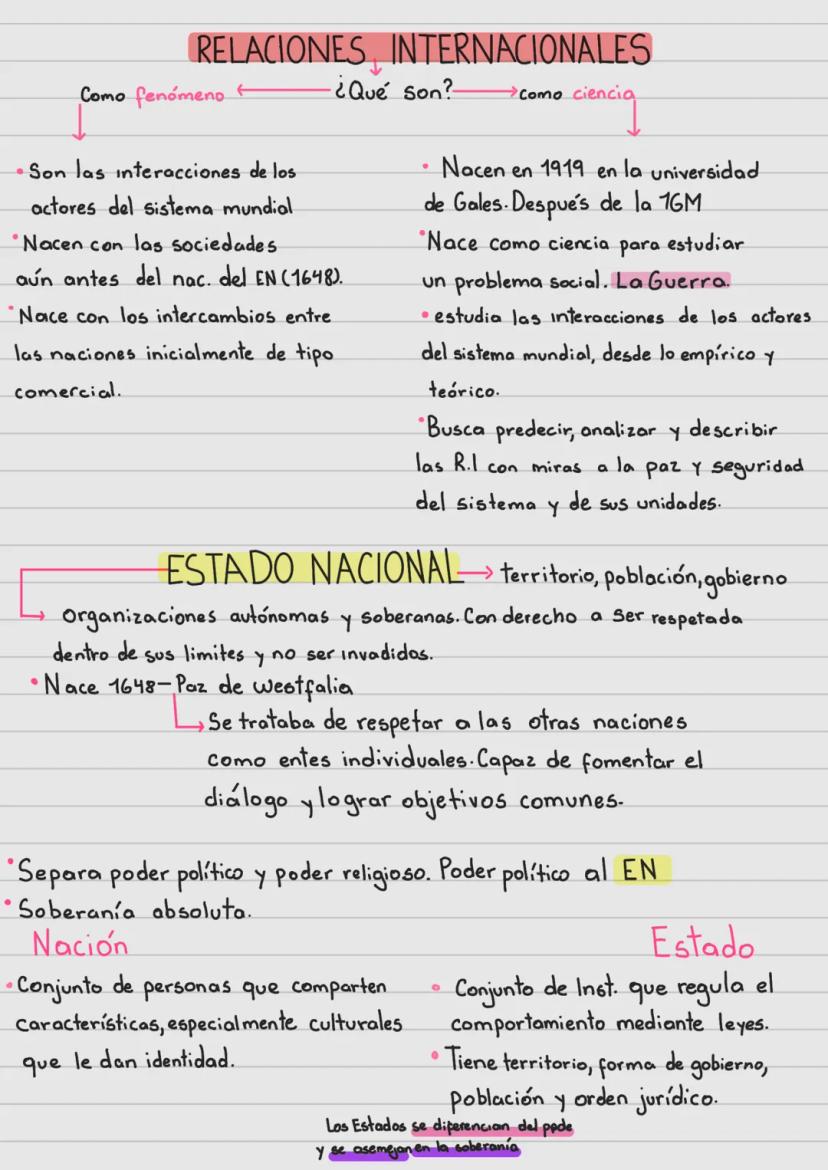 RELACIONES INTERNACIONALES
Como fenómeno
¿Qué son?
como ciencia
• Son las interacciones de los
actores del sistema mundial
• Nacen con las sociedades
aún antes del nac. del EN (1648).
• Nace con los intercambios entre
las naciones inicialmente de tipo
comercial.
• Nacen en 1919 en la universidad
de Gales. Después de la 1GM
• Nace como ciencia para estudiar
un problema social. La Guerra.
• estudia las interacciones de los actores
del sistema mundial, desde lo empírico y
teórico.
• Busca predecir, analizar y describir
las R.I con miras a la paz y seguridad
del sistema y de sus unidades.
ESTADO NACIONAL → territorio, población, gobierno
Organizaciones autónomas y soberanas. Con derecho a ser respetada
dentro de sus limites y no ser invadidos.
• Nace 1648 – Paz de Westfalia
Se trataba de respetar a las otras naciones
como entes individuales. Capaz de fomentar el
diálogo y lograr objetivos comunes.
• Separa poder político y poder religioso. Poder político al EN
• Soberanía absoluta.
Nación
• Conjunto de personas que comparten
características, especialmente culturales
que le dan identidad.
Estado
• Conjunto de Inst. que regula el
comportamiento mediante leyes.
• Tiene territorio, forma de gobierno,
población y orden jurídico.
Los Estados se diferencian del ppde
y se asemejan en la soberanía